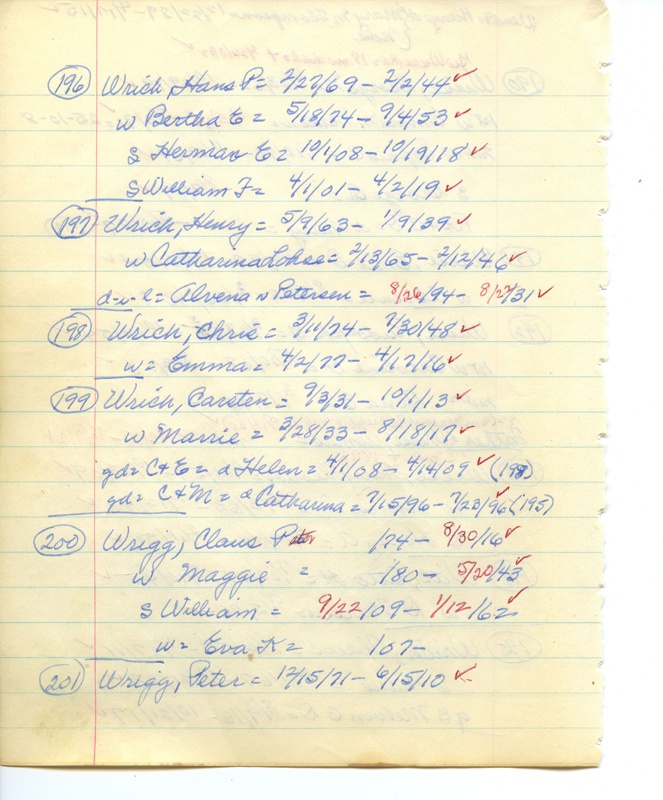 196 Wrich, Hans P= 2/27/69 - 2/2/44 ✓
w Bertha E = 5/18/74 - 9/4/53 ✓
S Herman E = 10/1/08 - 10/19/18 ✓
S William F= 4/1/01 - 4/2/19 ✓
197 Wrich, Henry = 5/9/63 - 1/9/39 ✓
w Catharina Lohse = 2/13/65 - 2/12/46 ✓
d-w-l = Alvena v Petersen = 8/26/94 - 8/27/31 ✓
198 Wrich, Chris = 3/11/74 - 7/30/48 ✓
w = Emma = 4/2/77 - 4/17/16 ✓
199 Wrich, Carsten = 9/3/31 - 10/1/13 ✓
w Marrie = 3/28/33 - 8/18/17 ✓
gd= C+E = d Helen = 4/1/08 - 4/14/09 ✓ (198)
gd= C+M = d Catharina = 7/15/96 - 7/28/96 ✓ (195)
200 Wrigg, Claus Peter /74 - 8/30/16 ✓
w Maggie = /80 - 5/20/43 ✓
S William = 9/22/09 - 1/12/62 ✓
w = Eva K = /07-
201 Wrigg, Peter = 12/15/71 - 6/15/10 ✓